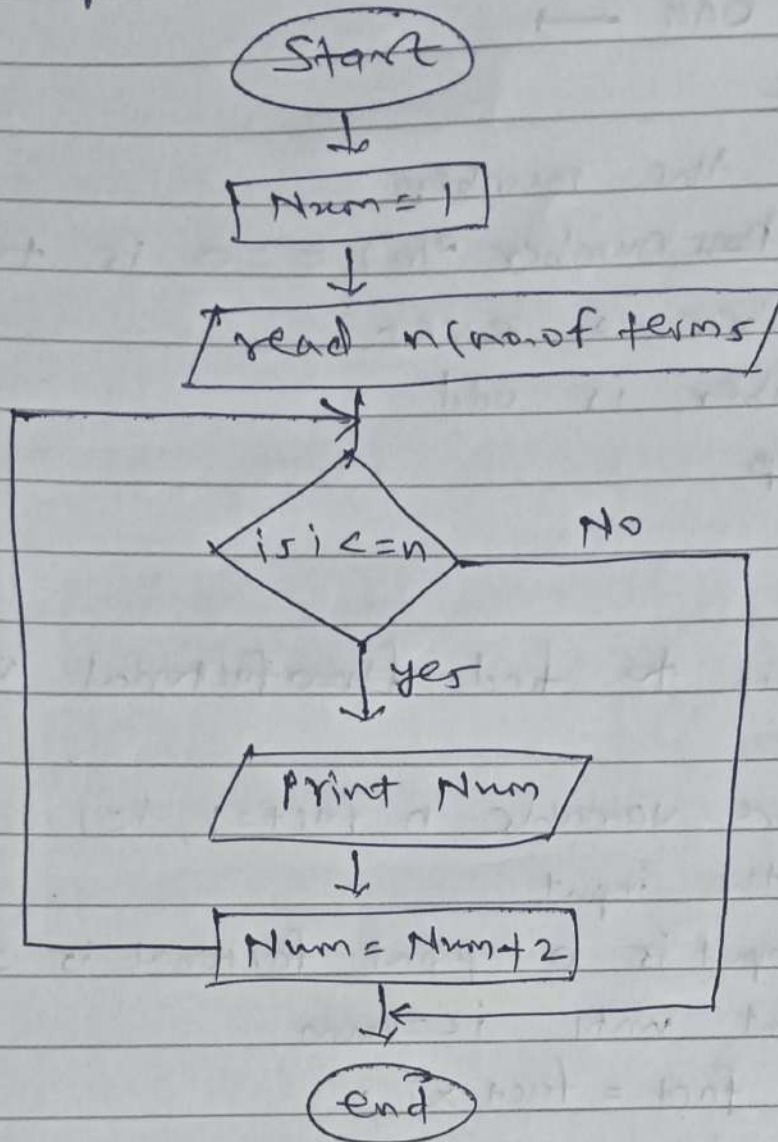 Start
Num = 1
read n(no.of terms
is i <=n
No
yes
Print Num
Num = Num+2
end